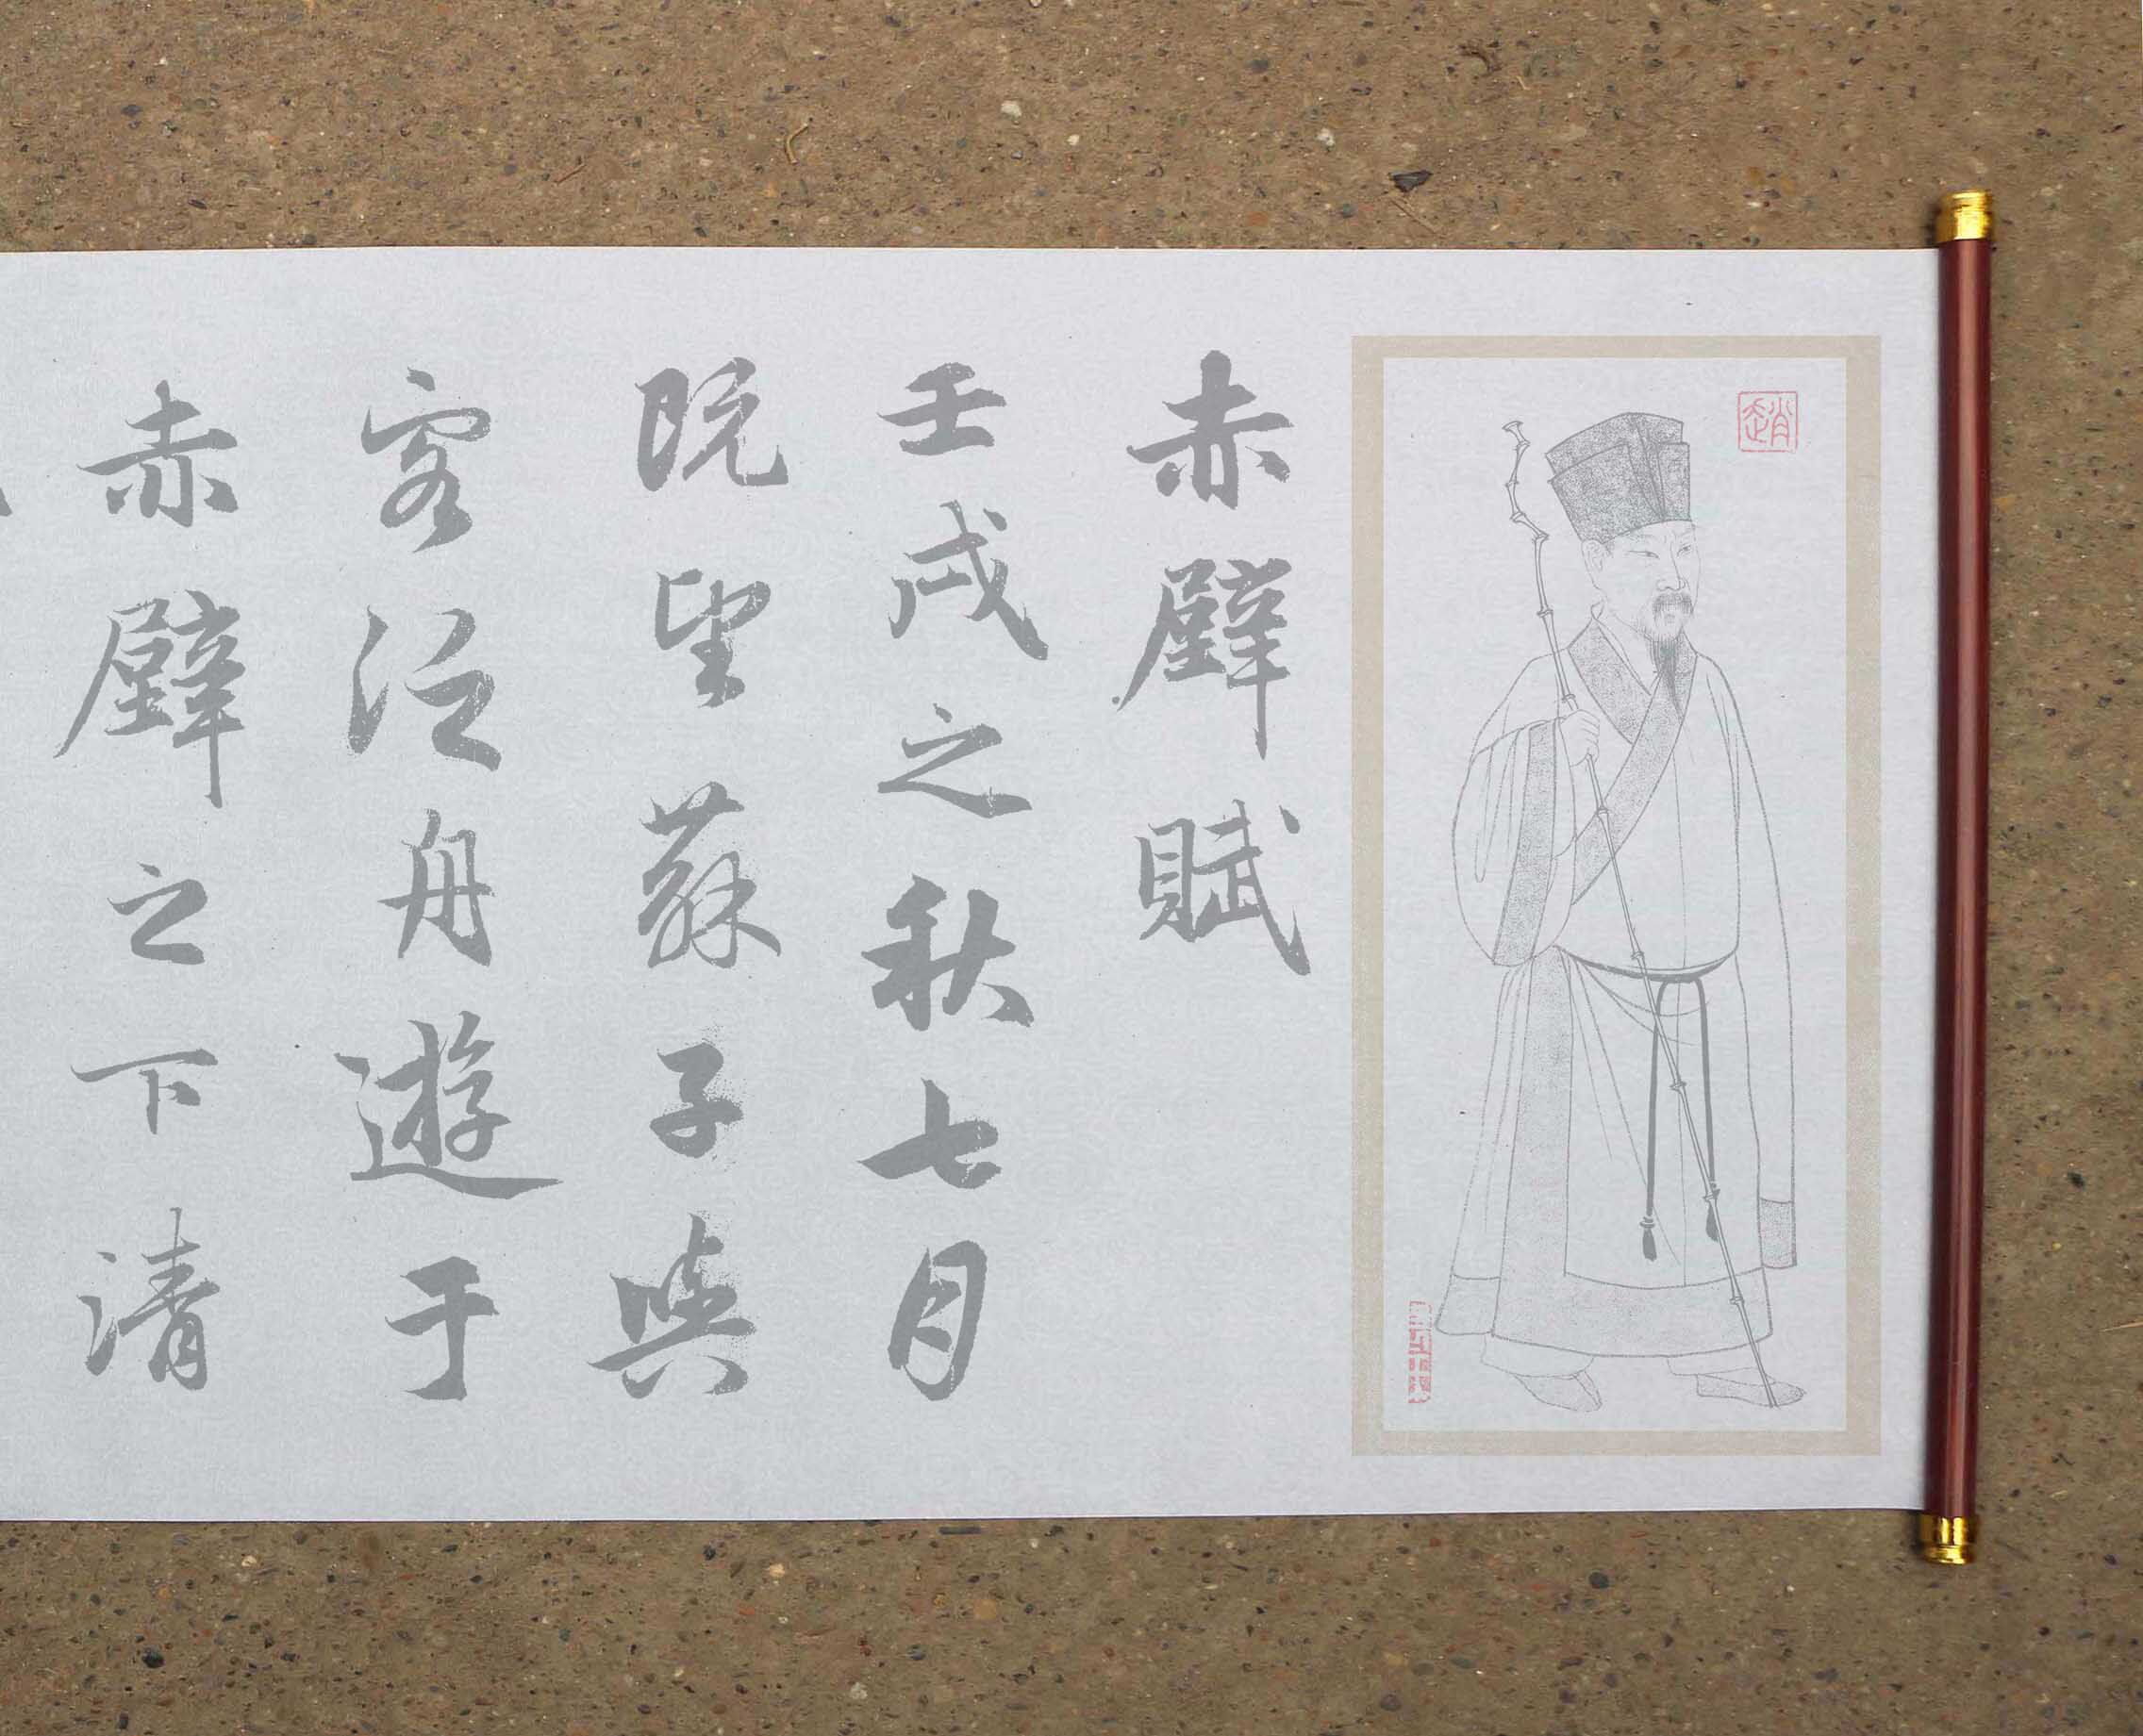 赤壁賦
壬戌之秋七月
既望蘇子與
客泛舟遊于
赤壁之下清
趙